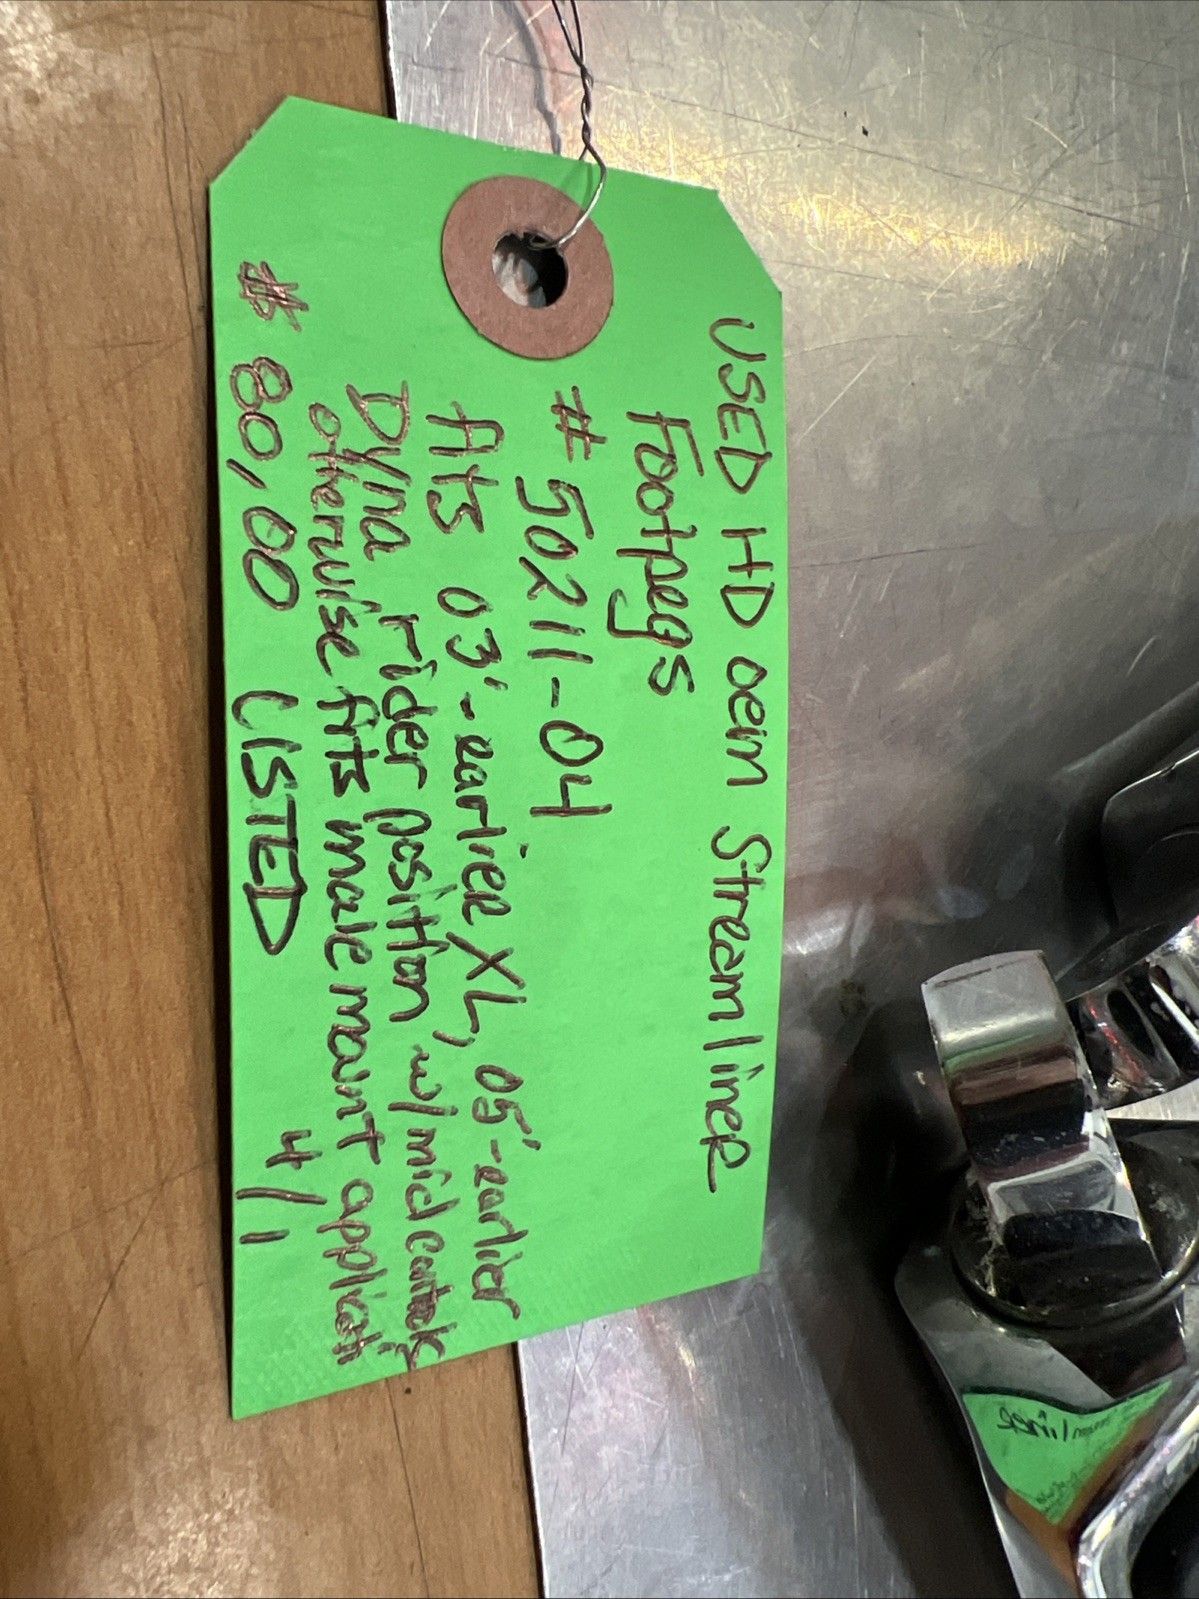 USED HD oem Streamliner
Footpegs
# 50211-04
fits 03'-earlier XL, 05'-earlier
Dyna rider position w/mid controls
otherwise fits male mount application
$ 80,00 LISTED 4/1
liner